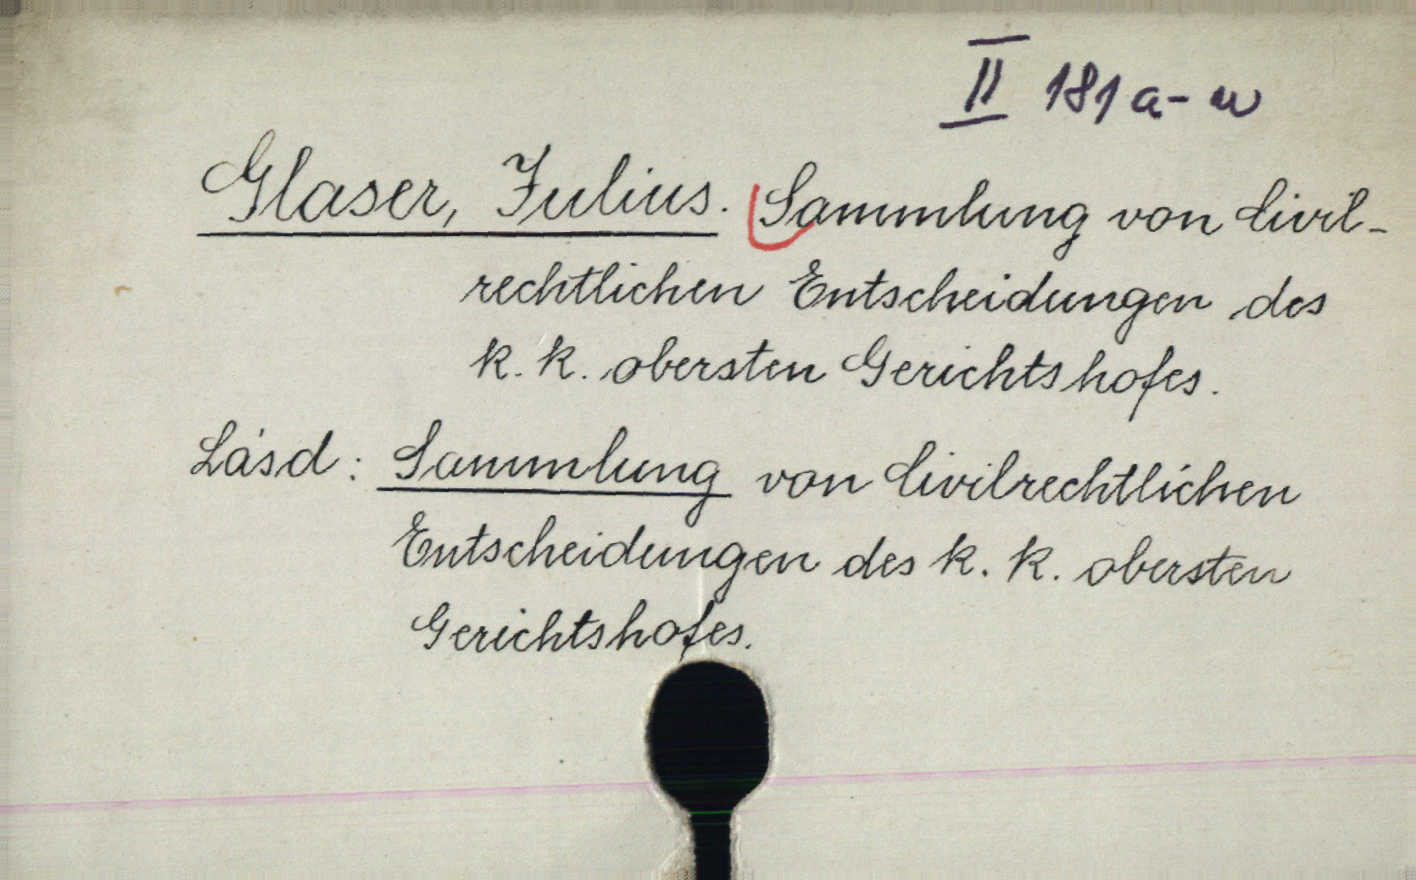 II 181 a-w
Glaser, Julius. Sammlung von Civil-
rechtlichen Entscheidungen des
k. k. obersten Gerichtshofes.
Lásd: Sammlung von Civilrechtlichen
Entscheidungen des k. k. obersten
Gerichtshofes.